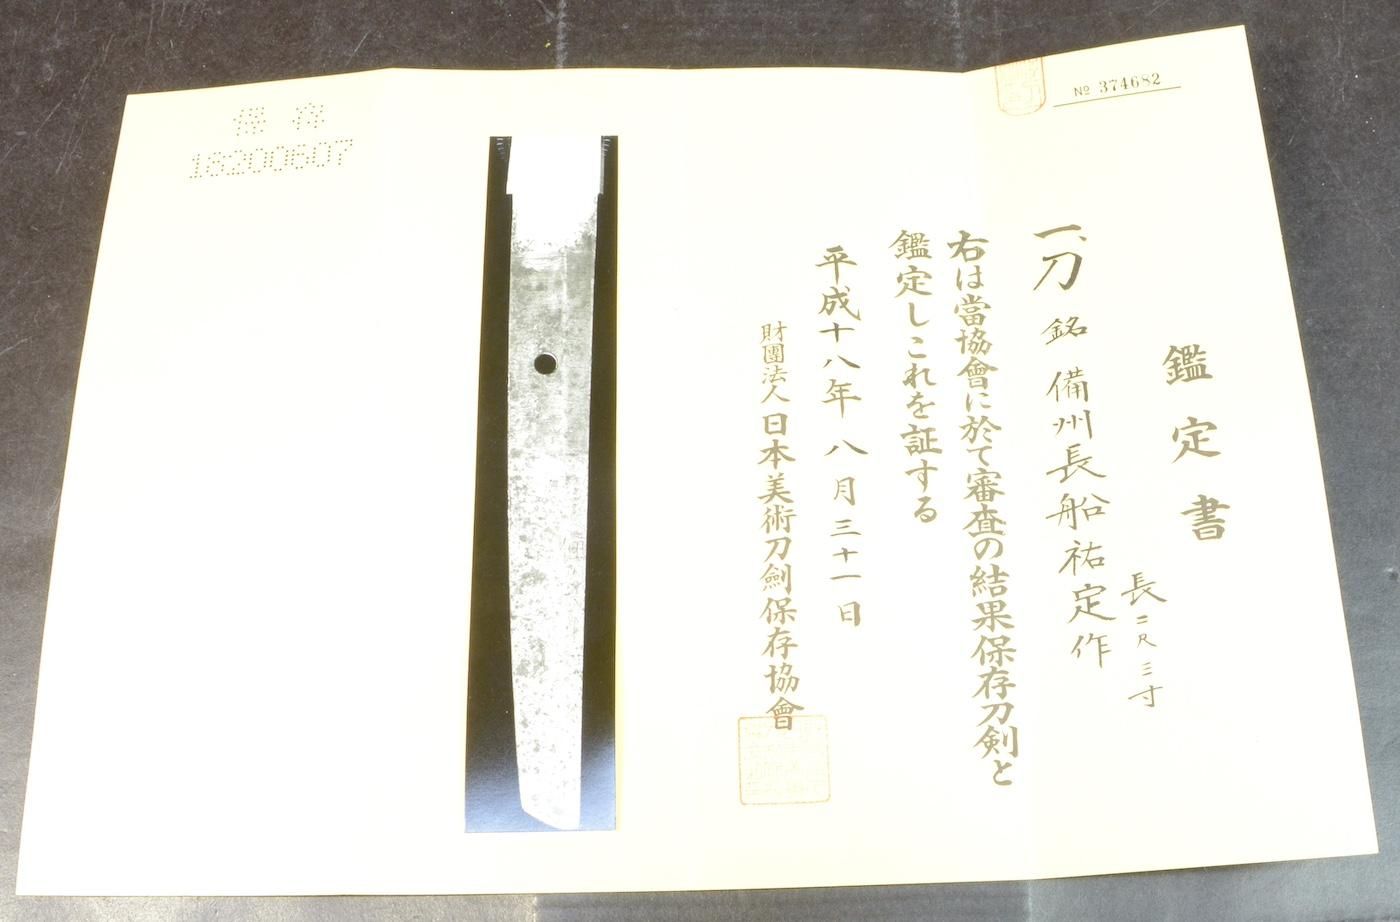 № 374682
鑑定書
一、刀 銘 備州長船祐定作
長二尺三寸
右は當協會に於て審査の結果保存刀剣と
鑑定しこれを証する
平成十八年八月三十一日
財團法人日本美術刀劍保存協會
保存
18200607